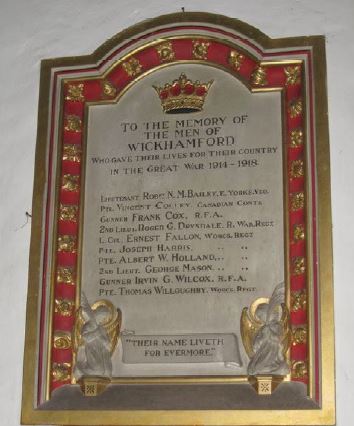 TO THE MEMORY OF
THE MEN OF
WICKHAMFORD
WHO GAVE THEIR LIVES FOR THEIR COUNTRY
IN THE GREAT WAR 1914-1918.
LIEUTENANT ROBT N.M. BAILEY, E. YORKS. YEO.
PTE. VINCENT COLLEY, CANADIAN CONTT
GUNNER FRANK COX, R.F.A.
2ND LIEUT. ROGER G. DRYSDALE, R. WAR. REGT
L. CPL. ERNEST FALLON, WORCS. REGT
PTE. JOSEPH HARRIS, " "
PTE. ALBERT W. HOLLAND, " "
2ND LIEUT. GEORGE MASON, " "
GUNNER IRVIN G. WILCOX, R.F.A.
PTE. THOMAS WILLOUGHBY, WORCS. REGT
"THEIR NAME LIVETH
FOR EVERMORE."